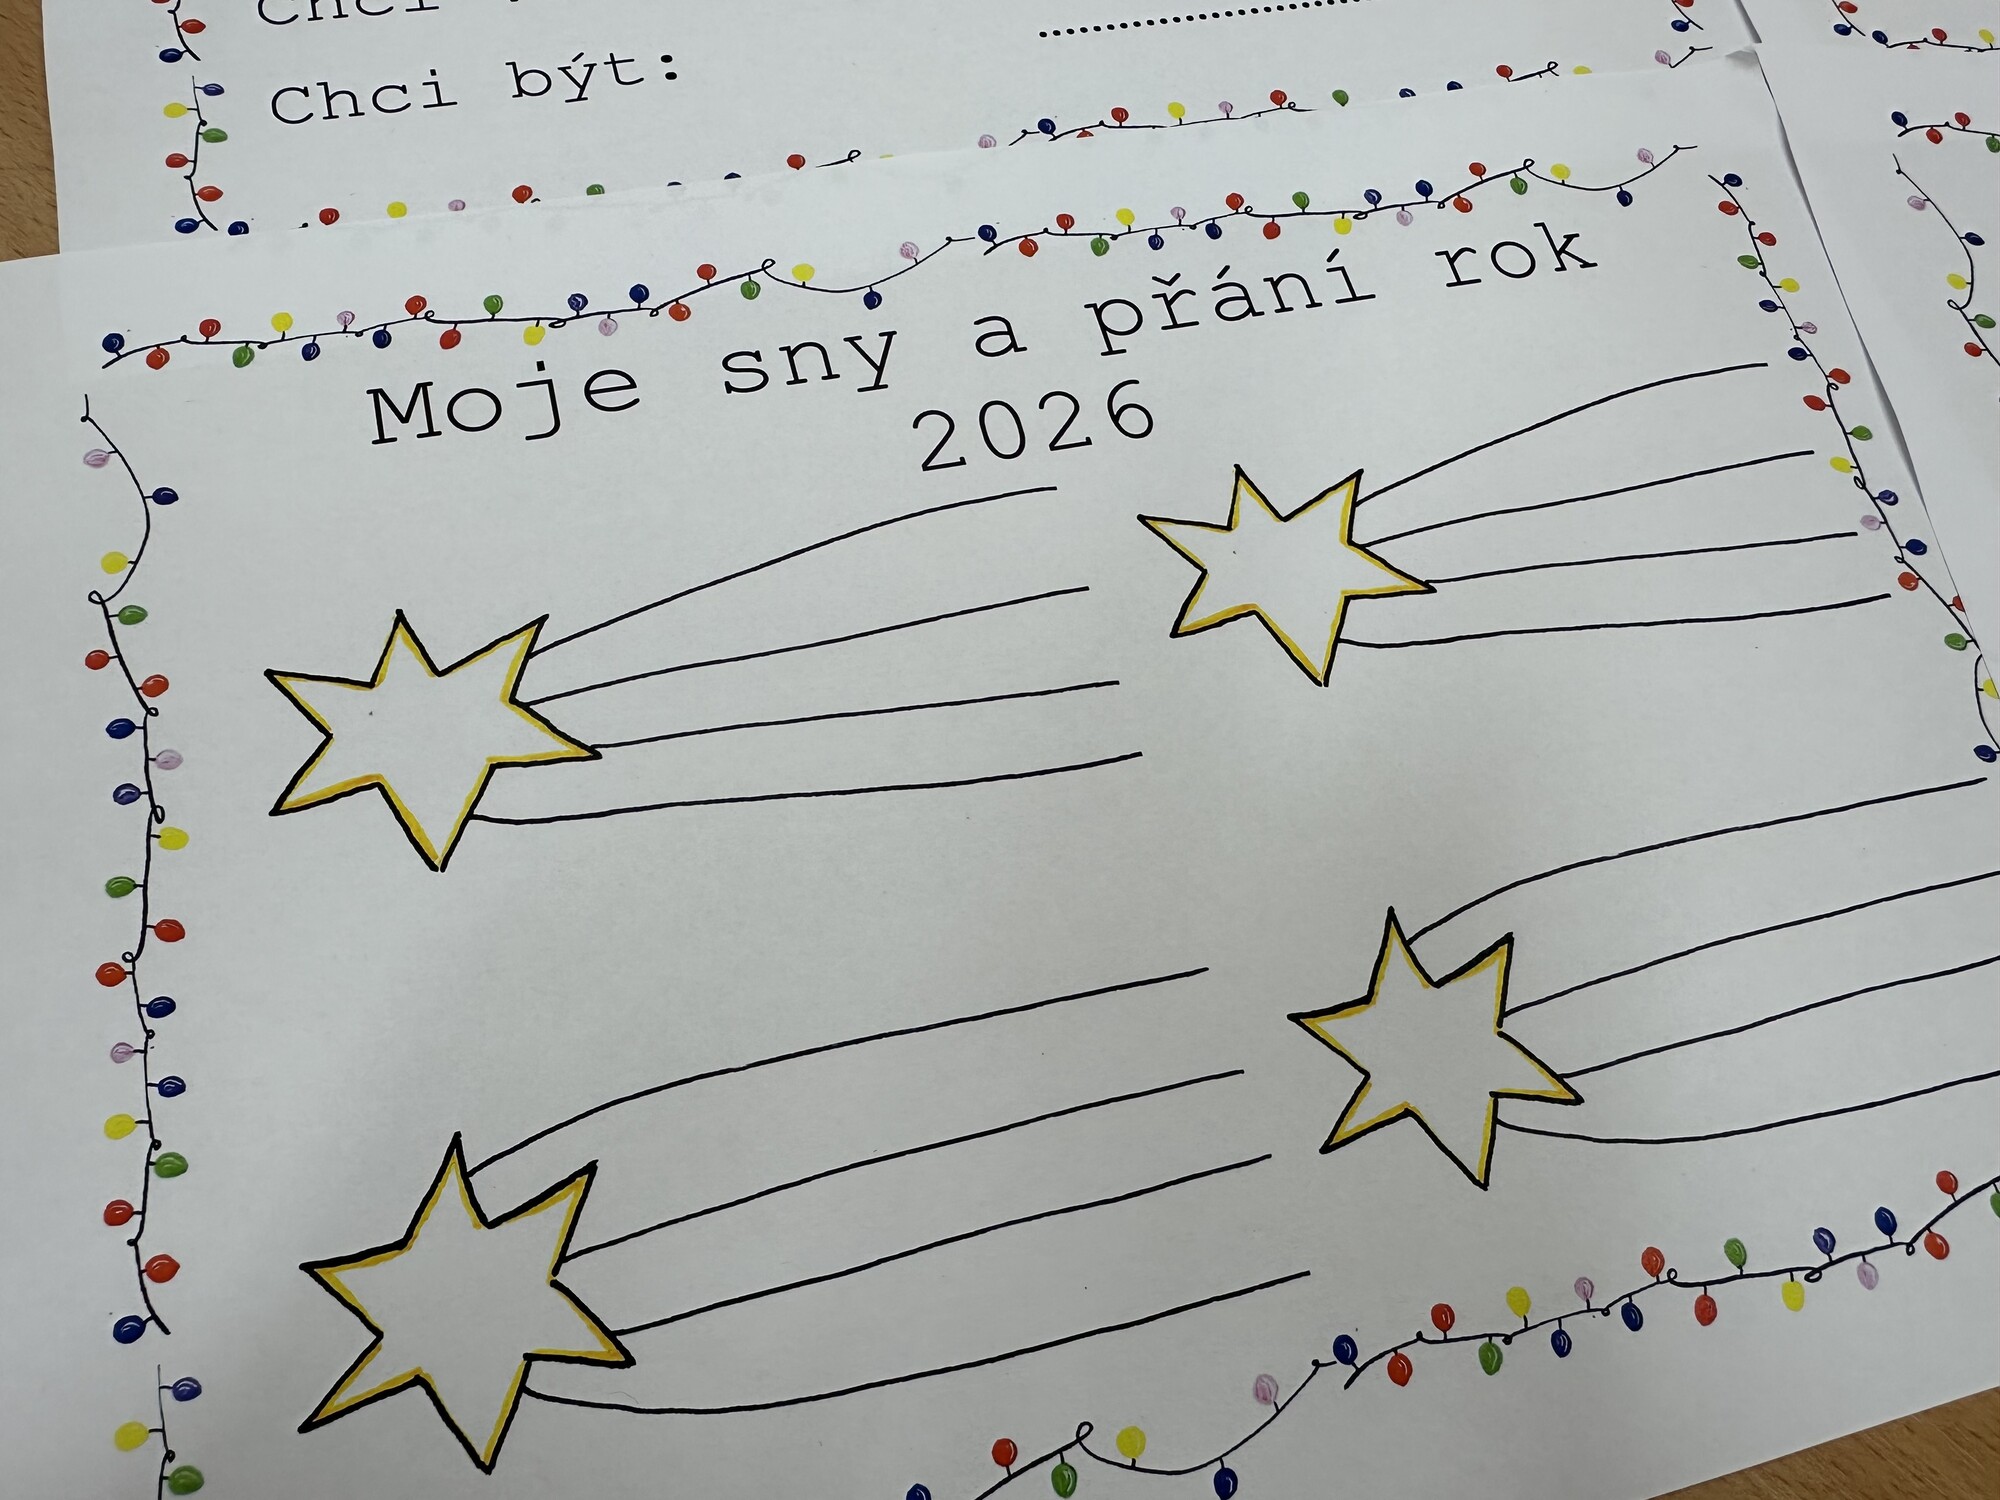 Chci
Chci být:
Moje sny a přání rok
2026